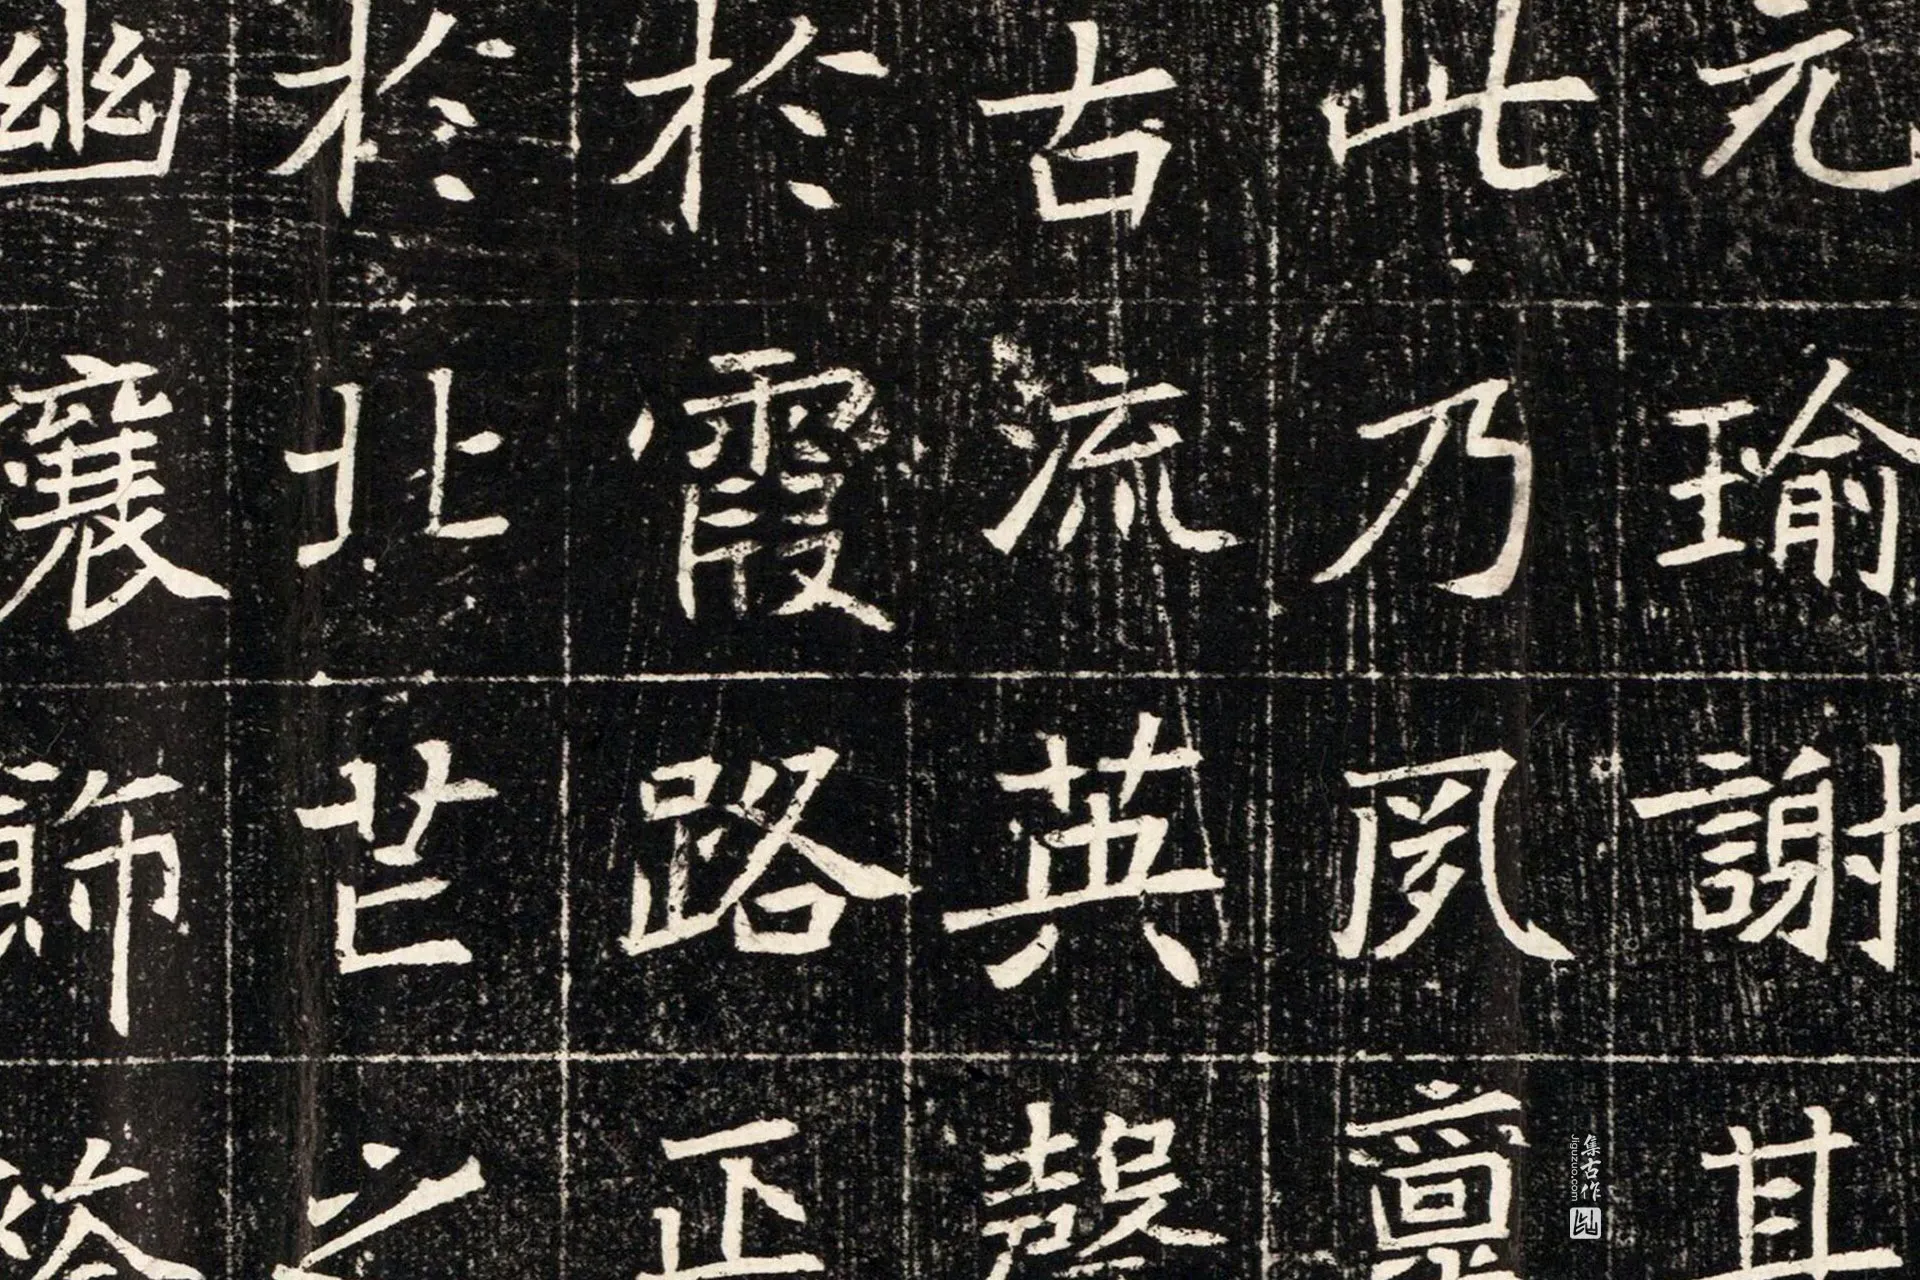 元瑜謝其
此乃夙稟
古流英聲
於霞路正
於北芒之
幽襄飾終
集古作
Jiguzuo.com